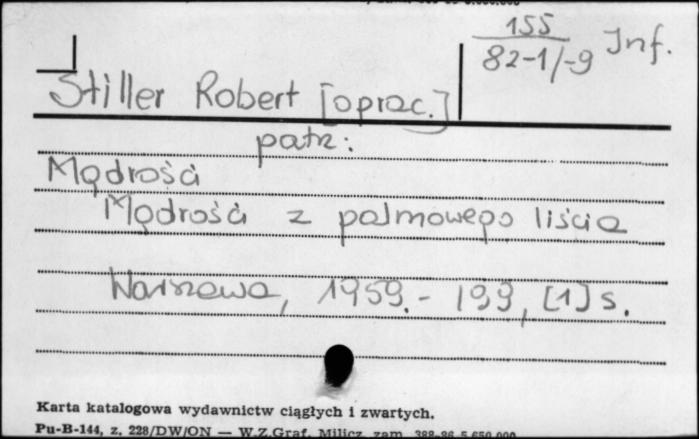 155 Inf.
82-1/-9
Stiller Robert [oprac.]
patrz:
Mądrości
Mądrości z palmowego liścia
Warszawa, 1959.- 199, [1] s.
Karta katalogowa wydawnictw ciągłych i zwartych.
Pu-B-144, z. 228/DW/ON — W.Z.Graf. Milicz, zam.